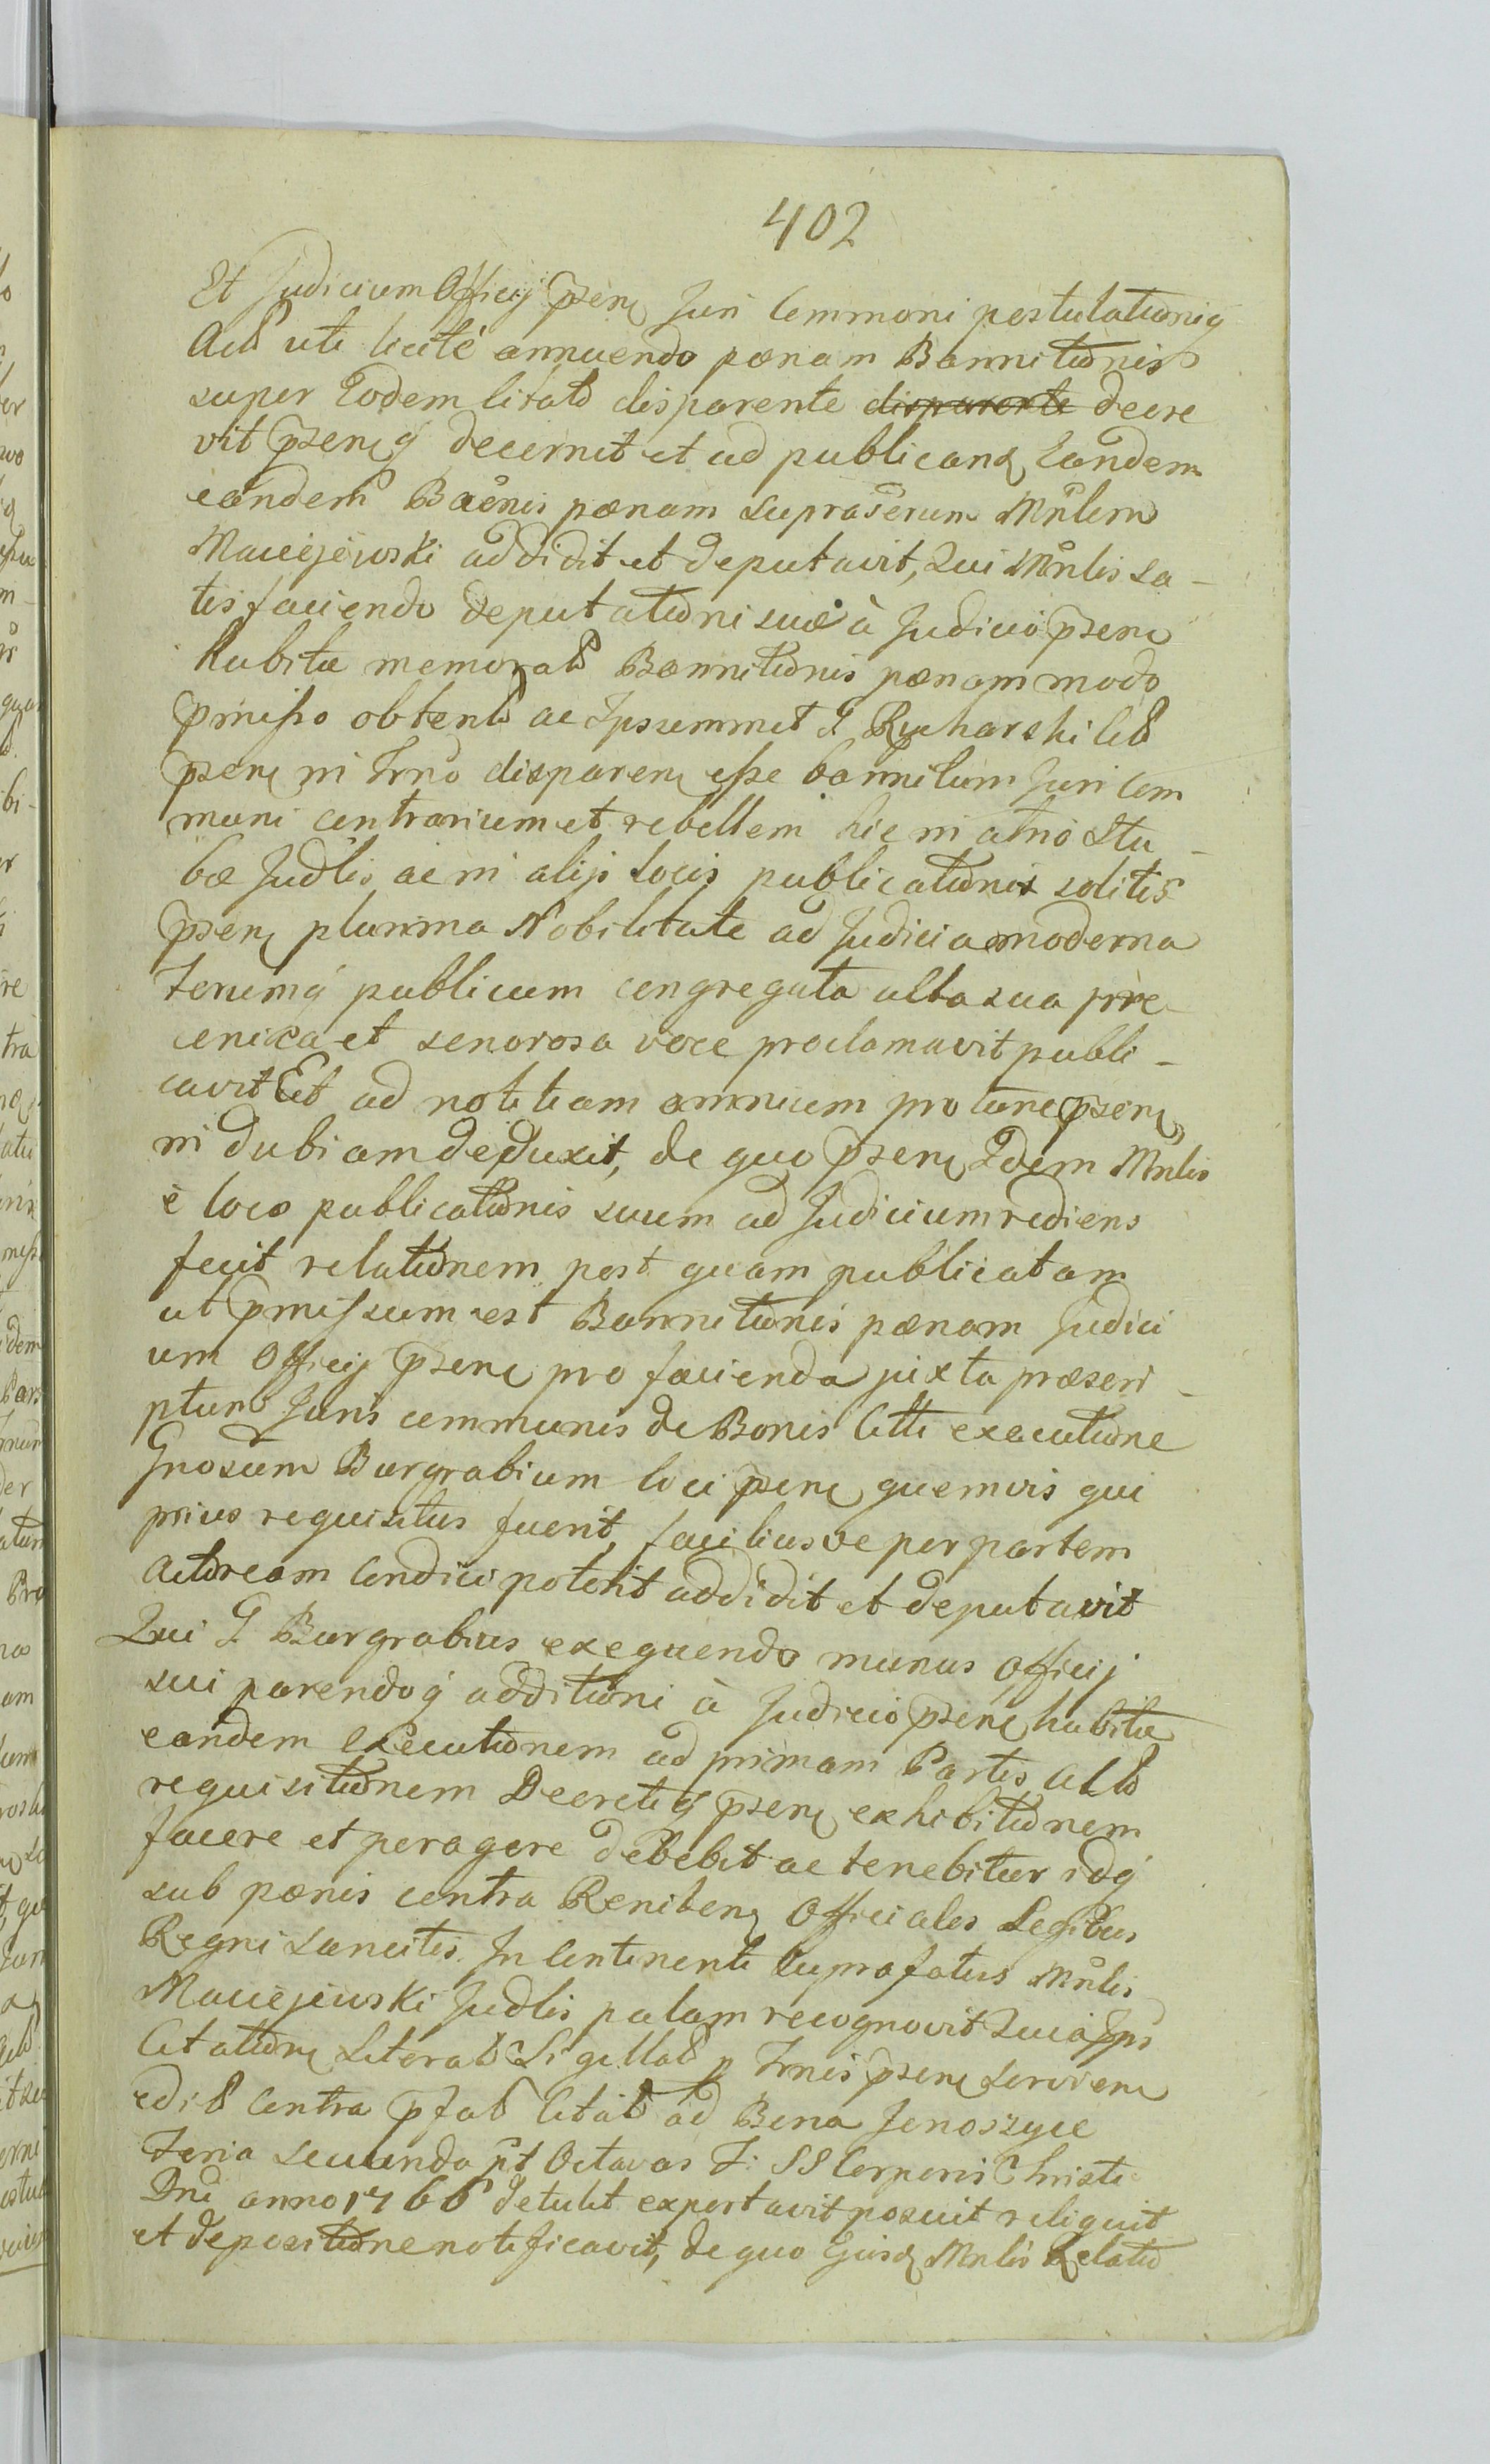 402
Et Judicium Officij psen Juri Commoni postulationiq
Act uti licité annuendo pœnam Bannitionis
super Eodem Citato disparente disparente decre
vit psenq decernit et ad publicand Eandem
eandem Baenis pœnam supraserum Mnlem
Maciejewski addidit et deputavit, Qui Mnlis sa-
tisfaciendo deputationi suæ à Judicio psen
habitæ memorat Bannitionis pœnam modo
pmisso obtent ac Ipsummet G Rucharski Cit
psen in Trno disparen esse bannitum Juri Com
muni contrarium et rebellem hic in atrio Stu-
bæ Judlis ac in alijs Locis publicationis solitis
psen plurima Nobilitate ad Judicia moderna
Terumq publicum congregata alta sua præ-
conica et sonorosa voce proclamavit publi-
cavit Et ad notitiam omnium pro tunc psen
in dubiam deduxit, de quo psen Idem Mnlis
è loco publicationis suum ad Judicium rediens
fecit relationem post quam publicatam
ut pmissum est Bannitionis pœnam Judici
um Officij psen pro facienda juxta præscri-
ptum Juris communis de Bonis Citti executione
Gnosum Burgrabium loci psen quemvis qui
prius requisitus fuerit, faciliusve per partem
Actoream Condici poterit addidit et deputavit
Qui G. Burgrabius exequendo munus Officij
sui parendoq additioni à Judicio psen habitæ
eandem Executionem ad primam Partis Act
requisitionem Decretiq psen exhibitionem
facere et peragere debebit ac tenebitur idq
sub pœnis contra Reniten Officiales Legibus
Regni sancitis. In Continenti Suprafatus Mnlis
Maciejewski Judlis palam recognovit Quia Ipse
Citation Literat Sigillat p Trnis psen servien
edit Contra pfat Citat ad Bona Jenoszyce
Feria secunda pt Octavas F: SS Corporis Christi
Dni anno 1766 detulit exportavit posuit reliquit
et depositione notificavit, de quo Ejusd Mnlis Relatio